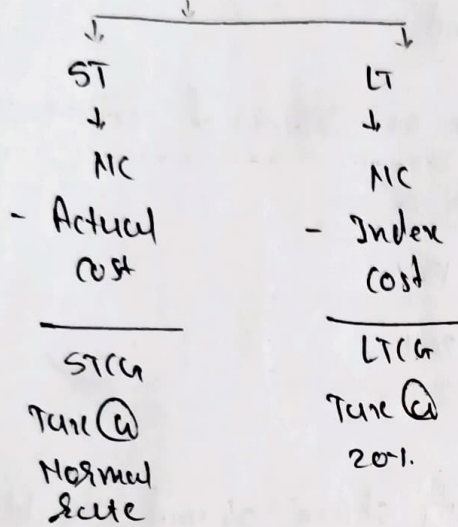 ST
NC
- Actual
cost
STCG
Tax @
Normal
Rate
LT
NC
- Index
cost
LTCG
Tax @
20%.